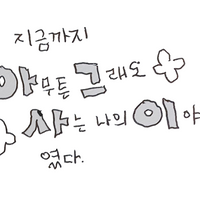 지금까지
아무튼 그래도
사는 나의 이야
였다.